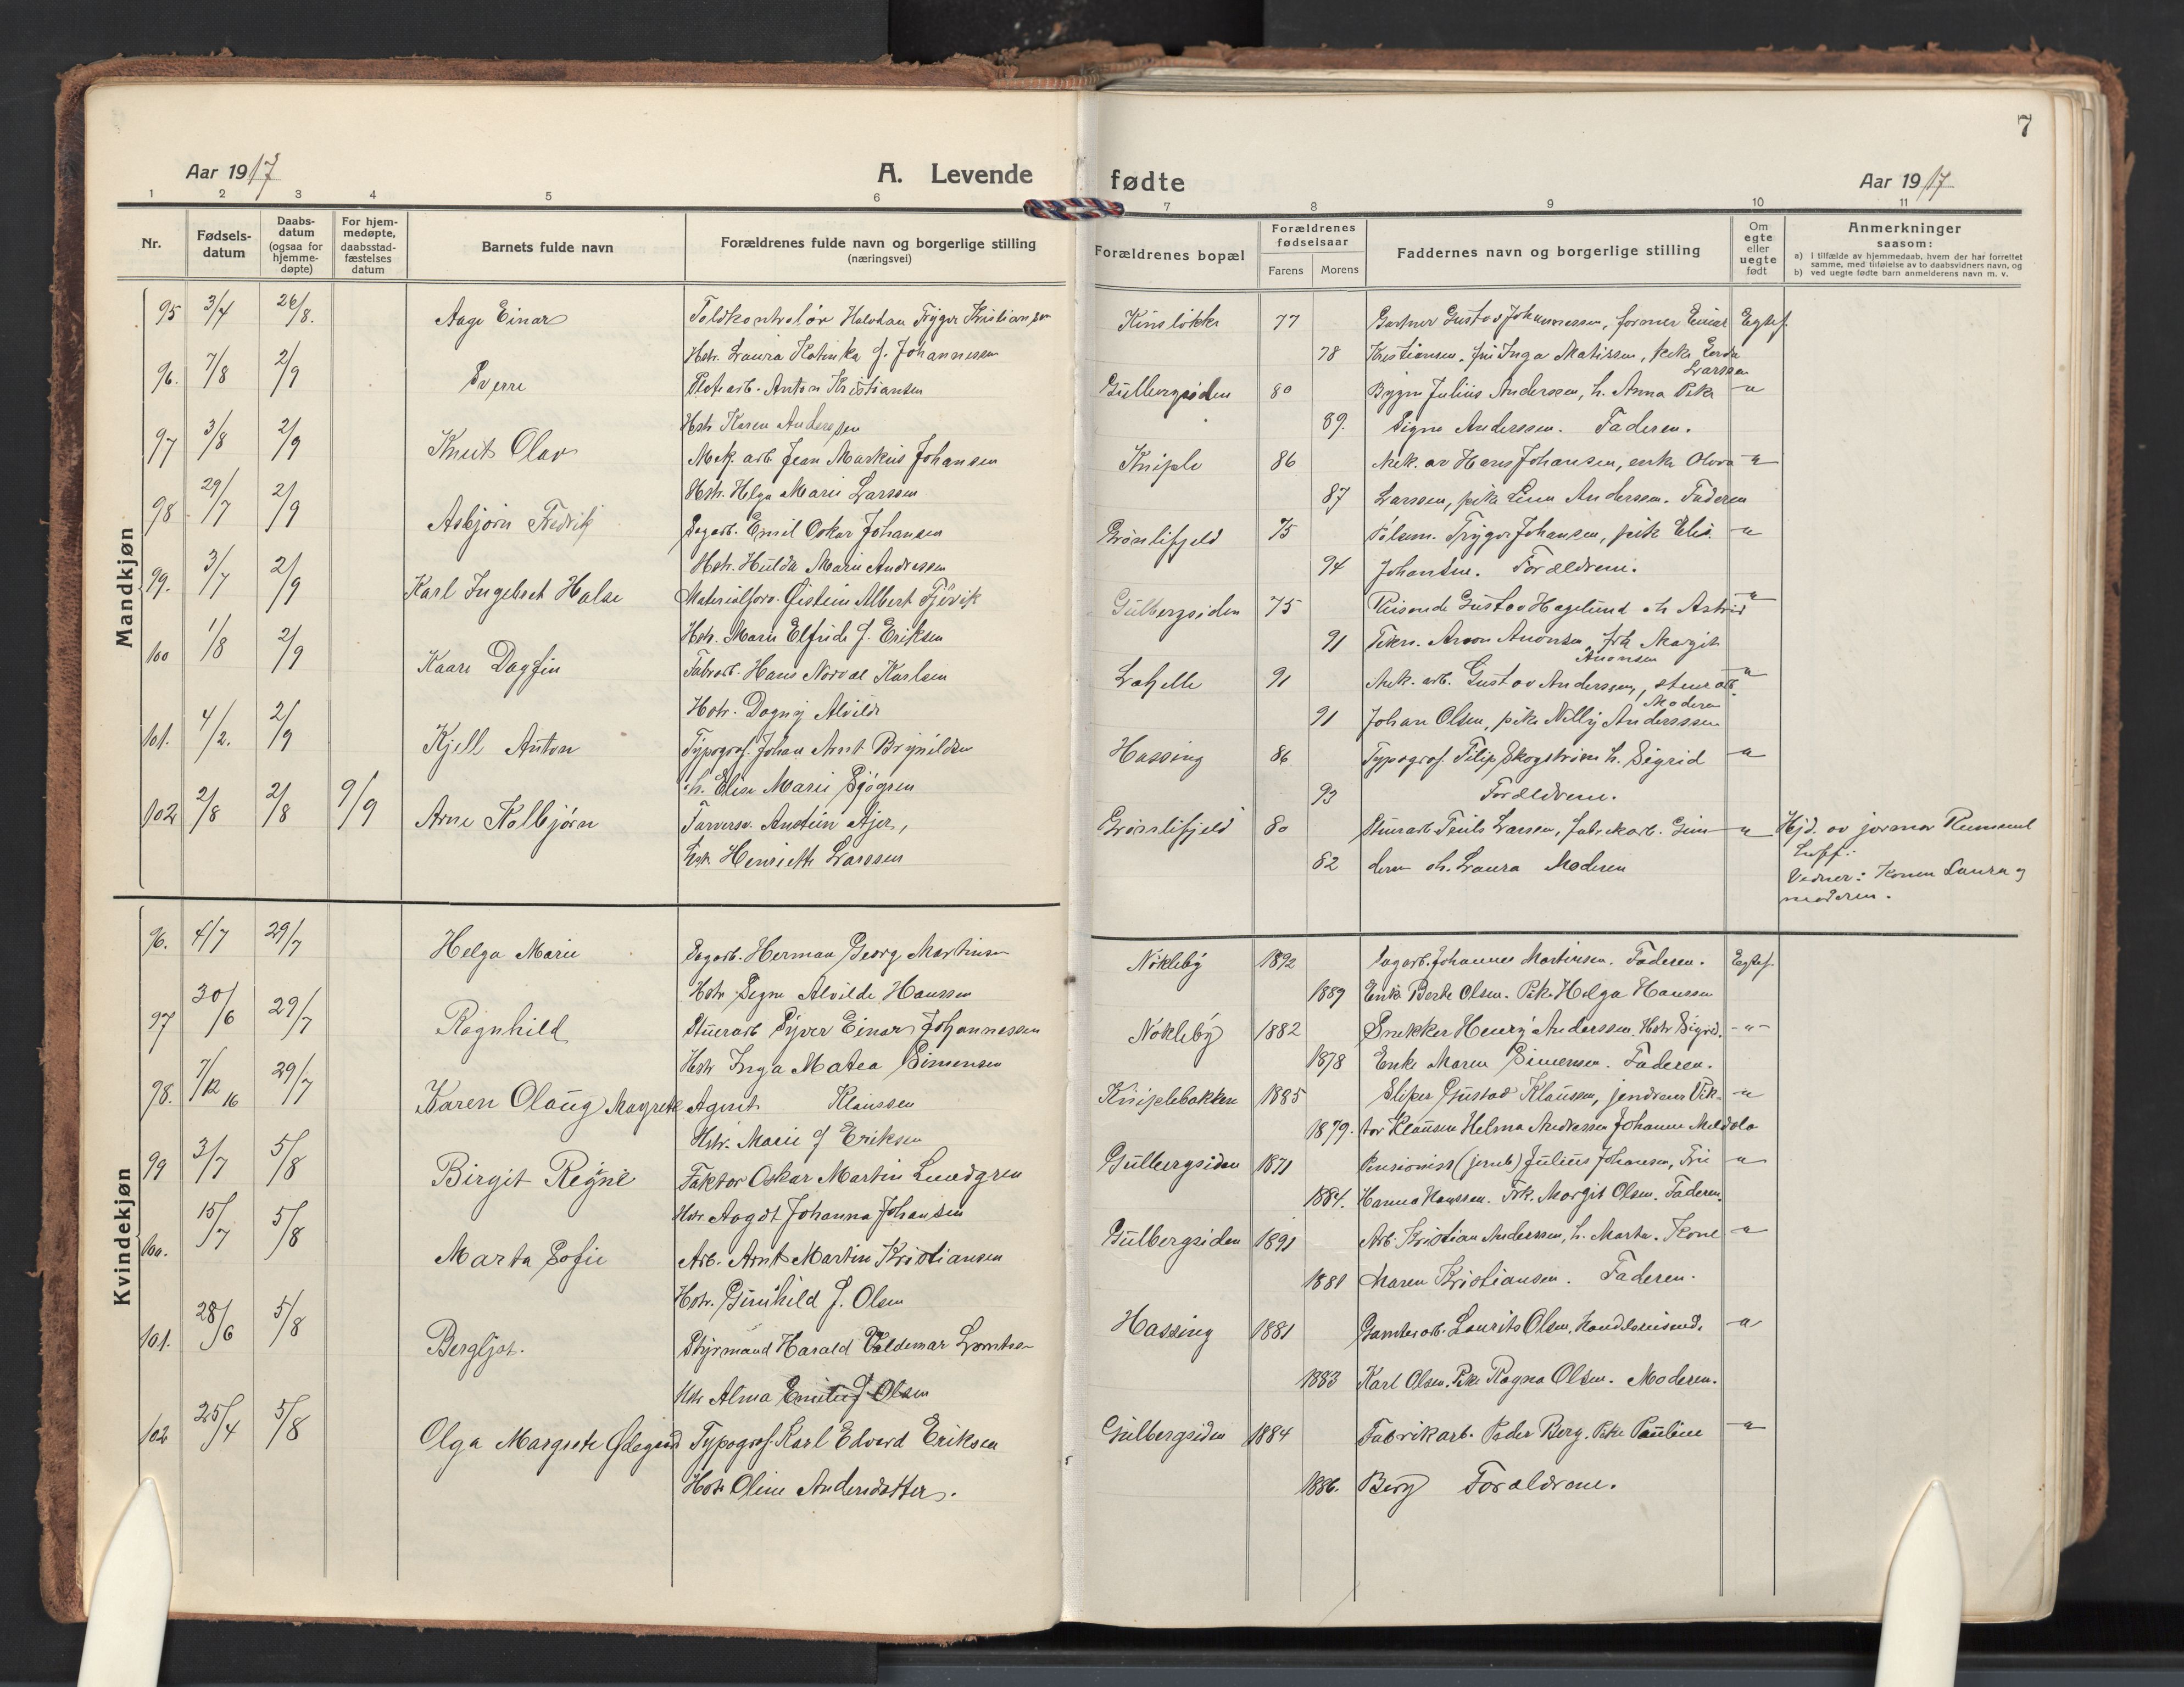 7
Aar 1917
A. Levende fødte
Aar 1917
1 2 3 4 5 6 7 8 9 10 11
Nr.
Fødsels-
datum
Daabs-
datum
(ogsaa for
hjemme-
døpte)
For hjem-
medøpte,
daabsstad-
fæstelses
datum
Barnets fulde navn
Forældrenes fulde navn og borgerlige stilling
(næringsvei)
Forældrenes bopæl
Forældrenes
fødselsaar
Farens Morens
Faddernes navn og borgerlige stilling
Om
egte
eller
uegte
født
Anmerkninger
saasom:
a) I tilfælde av hjemmedaab, hvem der har forrettet
samme, med tilføielse av to daabsvidners navn, og
b) ved uegte fødte barn anmelderens navn m. v.
Mandkjøn
95 3/4 26/8. Aage Einar Toldkontrolør Halvdan Trygve Kristiansen Kinsløkke 77 Gartner Gustav Johannessen, former Einar Egtef.
Hstr. Laura Katinka f. Johannessen 78 Kristiansen, fru Inga Matissen, pike Gerda
Larssen
96. 7/8 2/9 Sverre Anton Kristiansen Gulbergsiden 80 Julius Anderssen, h. Anna Pike -"-
Hstr Karen Anderssen 89. Signe Anderssen. Faderen.
97 3/8 2/9 Knut Olav Mek. arb. Jean Markus Johansen Kniple 86 Mek. ar Hans Johansen, enke Olava -"-
Hstr. Helga Marie Larssen 87 Larssen, pike Anderssen. Faderen
98 29/7 2/9 Asbjørn Fredrik Sagarb. Emil Oskar Johansen Grønlifjeld 75 Trygve Johansen, pike Elis. -"-
Hstr. Hulda Marie Andressen 94 Johansen. Forældrene.
99. 3/7 2/9 Karl Ingebret Halse Materialforv. Øistein Albert Gulbergsiden 75 Reisende Gustav Hagelund Astrid -"-
Hstr. Marie Elfride f. Eriksen 91 Aronsen, frk Margit
Aronsen
100 1/8 2/9 Kaare Dagfin Fabrarb. Hans Norval Karlsen Lahelle 91 Mek. arb. Gustav Anderssen, stuerarb. -"-
Hstr. Dagny Alvilde 91 Johan Olsen, pike Nelly Anderssen
Moderen
101. 4/2. 2/9 Kjell Anton Typograf. Johan Arnt Brynildsen Hassing 86 Typograf. Filip Skogstrøm h. Sigrid -"-
h. Elise Marie Sjøgren 93 Forældrene.
102 2/8 2/8 9/9 Arne Kolbjørn Farversv. Anstein Ajer, Grønlifjeld 80 Stuerarb Larsen, fabrikarb. -"- Hjd. av jormor
Hstr Henriette Larssen 82 Laura Moderen
Vidner: Konen Laura og
moderen.
Kvindekjøn
96. 4/7 29/7 Helga Marie Sagarb. Herman Georg Martinsen Nökleby 1892 Sagarb. Johannes Martinsen. Faderen. Egtef
Hstr Signe Alvilde Hanssen 1889 Enke Berte Olsen. Pike Helga Hanssen
97 30/6 29/7 Ragnhild Stuerarb Syver Einar Johannessen Nökleby 1882 Snekker Henry Anderssen. Hstr Sigrid. -"-
Hstr Inga Matea Simensen 1878 Enke Maren Simensen. Faderen.
98. 7/12 16 29/7 Karen Olaug Magrete Agent Klaussen Kniplebakken 1885 Sliper Gustav Klaussen, Vik- -"-
Hstr. Marie f Eriksen 1879. tor Klausen Helma Andressen Johanne
99 3/7 5/8 Birgit Regne Faktor Oskar Martin Lundgren Gulbergsiden 1871 Pensionist (jernb) Julius Johansen, Fru -"-
Hstr Aagot Johanna Johansen 1884. Hanna Hanssen. Frk. Margit Olsen. Faderen.
100. 15/7 5/8 Marta Sofie Arb. Arnt Martin Kristiansen Gulbergsiden 1891 Arb. Kristian Anderssen, h. Marta. Kone -"-
Hstr. Gunhild f. Olsen 1881 Maren Kristiansen. Faderen.
101. 28/6 5/8 Bergljot. Styrmand Harald Valdemar Hassing 1881 Laurits Olsen, -"-
Hstr Alma Emilie f. Olsen 1883 Karl Olsen. Pike Ragna Olsen. Moderen.
102 25/4 5/8 Olga Margrete Ødegård Typograf. Karl Edvard Eriksen Gulbergsiden 1884 Fabrikarb. Peder Berg. Pike Pauline -"-
Hstr Oline Andersdatter. 1886. Berg Forældrene.